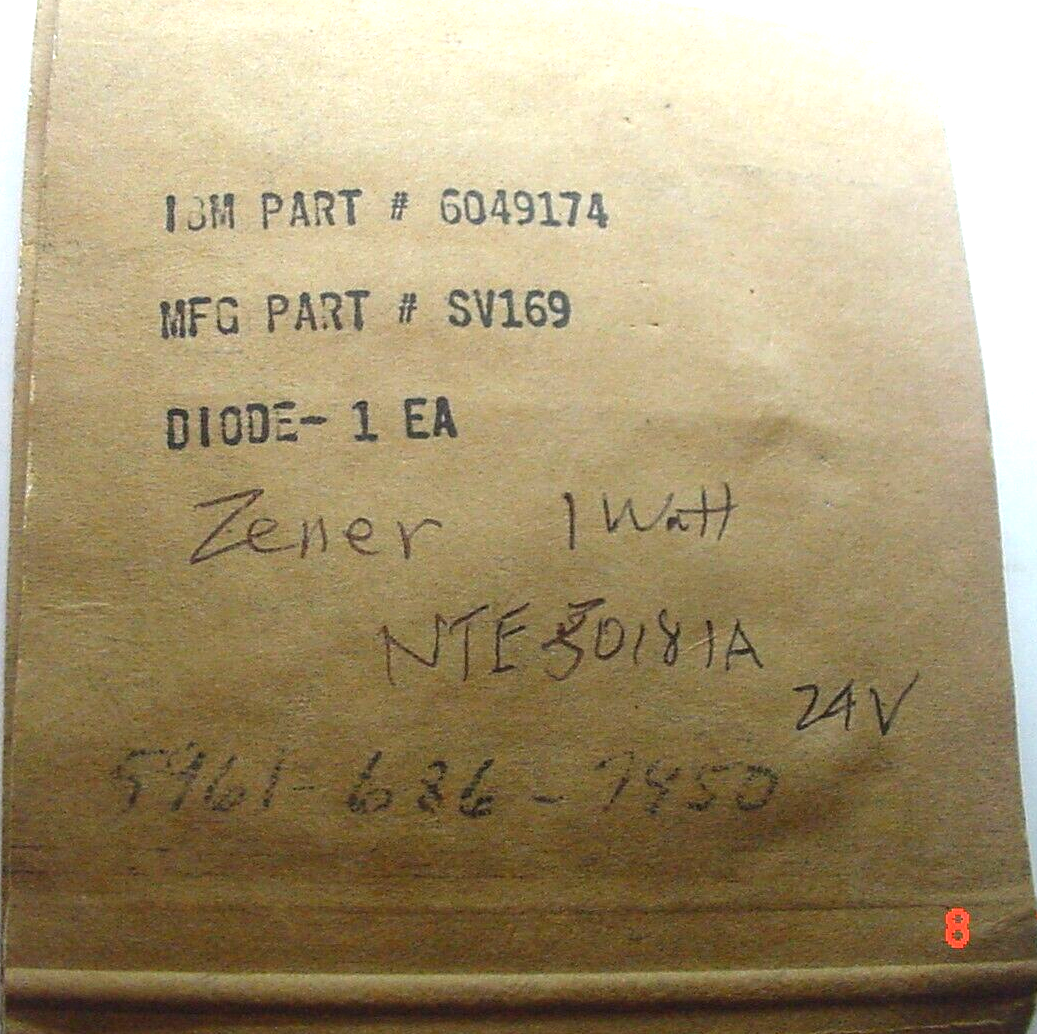 IBM PART # 6049174
MFG PART # SV169
DIODE- 1 EA
Zener 1 Watt
NTE 5018 1A
24V
5961-686-7450
8